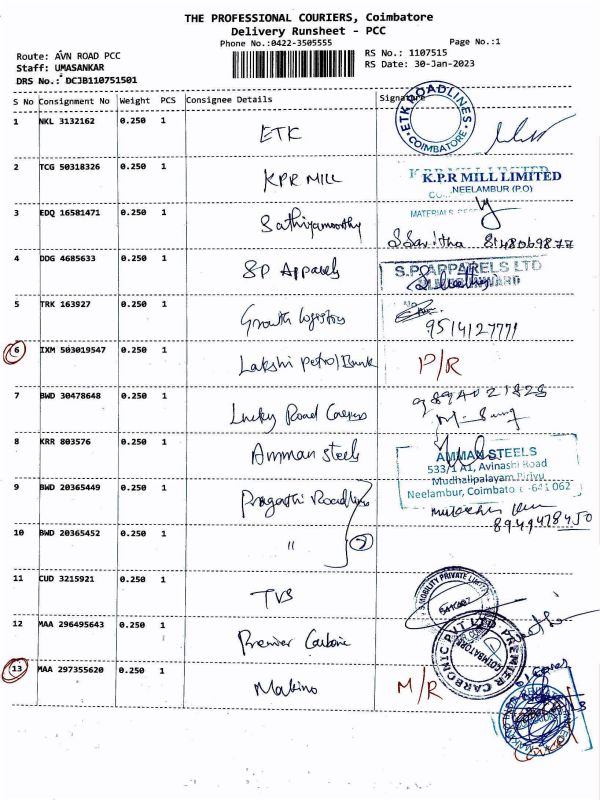 THE PROFESSIONAL COURIERS, Coimbatore
Delivery Runsheet - PCC
Phone No.:0422-3505555
Page No.:1
Route: AVN ROAD PCC
RS No.: 1107515
Staff: UMASANKAR
RS Date: 30-Jan-2023
DRS No.: DCJB110751501
S No Consignment No Weight PCS Consignee Details Signature
1 NKL 3132162 0.250 1 ETK ETK ROADLINES COIMBATORE
2 TCG 50318326 0.250 1 KPR MILL K.P.R MILL LIMITED
NEELAMBUR (P.O)
3 EDQ 16581471 0.250 1 Sathiyamoorthy
S Savitha 8148069877
4 DDG 4685633 0.250 1 SP Apparels S.P.APPARELS LTD
5 TRK 163927 0.250 1 Growth logistics 9514127771
6 IXM 503019547 0.250 1 Lakshi petrol Bunk P/R
7 BWD 30478648 0.250 1 Lucky Road Careers
8 KRR 803576 0.250 1 Amman steels AMMAN STEELS
533/1 A1, Avinashi Road
Mudhalipalayam Pirivu
Neelambur, Coimbatore - 641 062
9 BWD 20365449 0.250 1 Pragathi Roadlines
8949478450
10 BWD 20365452 0.250 1 "
11 CUD 3215921 0.250 1 TVS MOBILITY PRIVATE LIMITED
12 MAA 296495643 0.250 1 Premier Carbonic PREMIER CARBONIC PVT LTD COIMBATORE
13 MAA 297355620 0.250 1 Makino M/R